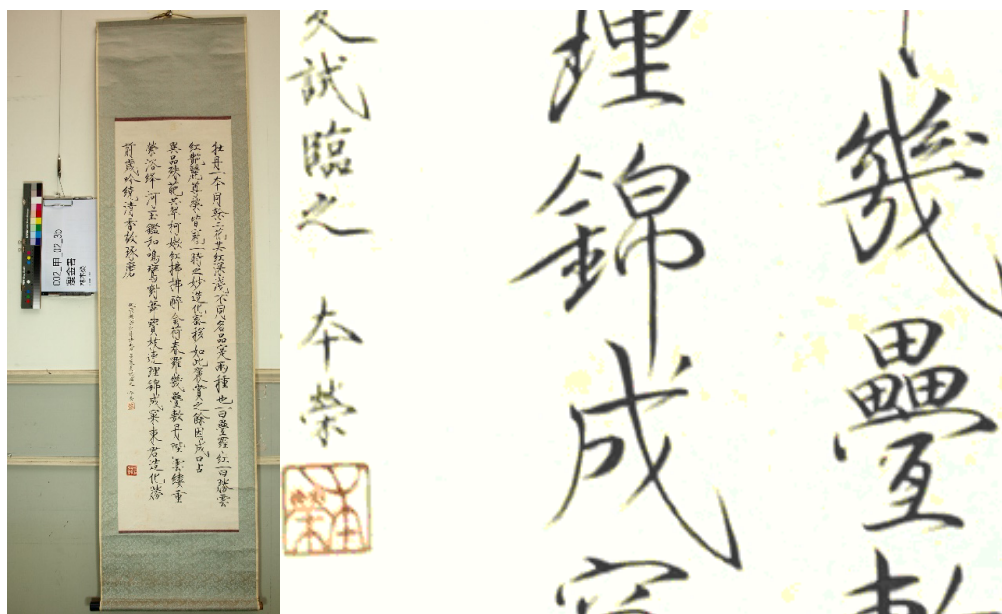 牡丹一本同榦二花其紅深淺不同名品實兩種也一曰疊羅紅一曰勝雲
紅艷麗尊榮皆冠一時之妙造化密移如此褒賞之餘因成口占
異品殊葩共翠柯嫩紅拂拂醉金荷春羅幾疊敷丹陛雲縷重
縈浴絳河玉鑑和鳴鸞對舞寶枝連理錦成窠東君造化勝
前歲吟繞清香故琢磨
幾疊敷
理錦成窠
試臨之 本榮